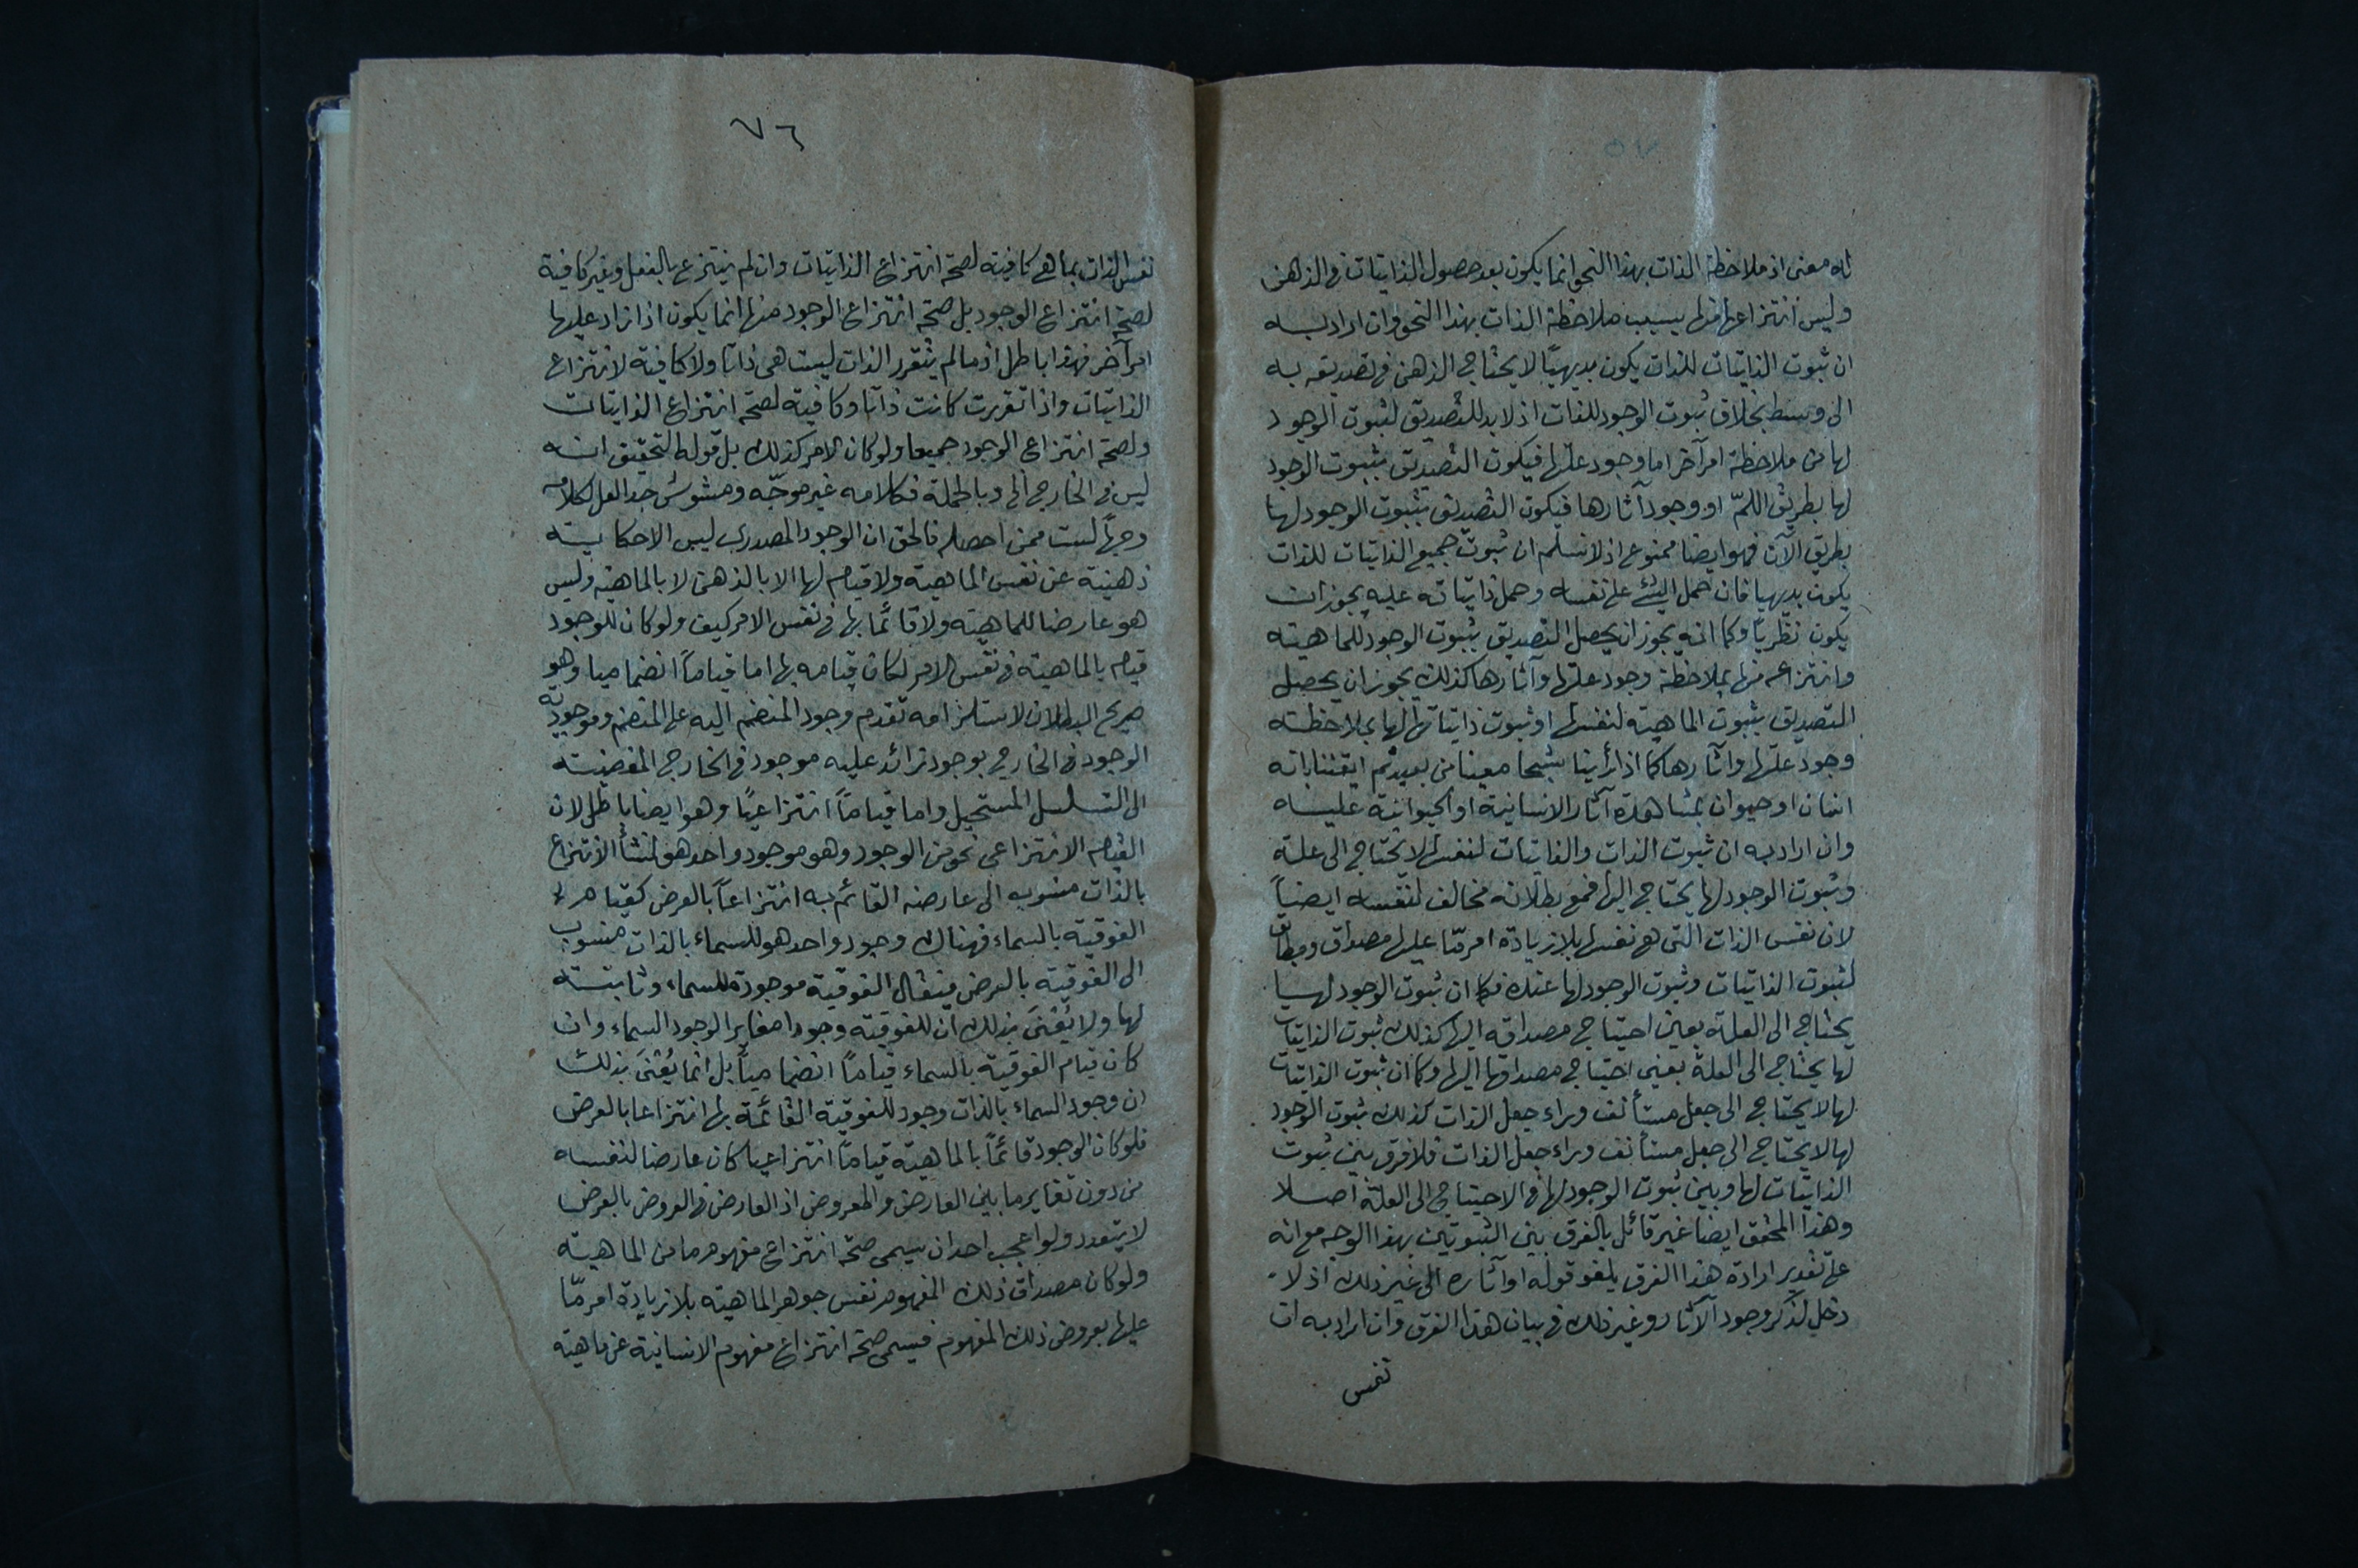 له معنى اذ ملاحظة الذات بهذا النحو انما يكون بعد حصول الذاتيات فى الذهن
وليس انتزاعها منها بسبب ملاحظة الذات بهذا النحو وان اراد به
ان ثبوت الذاتيات للذات يكون بديهيًا لا يحتاج الذهن فى تصديقه به
الى وسط بخلاف ثبوت الوجود للذات اذ لا بد للتصديق لثبوت الوجود
لها من ملاحظة امر آخر اما وجود علتها فيكون التصديق بثبوت الوجود
لها بطريق اللمّ او وجود آثارها فيكون التصديق بثبوت الوجود لها
بطريق الآن فهو ايضا ممنوع اذ لا نسلم ان ثبوت جميع الذاتيات للذات
يكون بديهيا فان حمل الشئ على نفسه وحمل ذاتياته عليه يجوز ان
يكون نظريًا وكما انه يجوز ان يحصل التصديق بثبوت الوجود للماهية
وانتزاعه منها بملاحظة وجود علتها وآثارها كذلك يجوز ان يحصل
التصديق بثبوت الماهية لنفسها او ثبوت ذاتياتها لها بملاحظة
وجود علتها وآثارها كما اذا رأينا شبحا معينا من بعيد ثم ايقنا بانه
انسان او حيوان بمشاهدة آثار الانسانية او الحيوانية عليه
وان اراد به ان ثبوت الذات والذاتيات لنفسها لا يحتاج الى علة
وثبوت الوجود لها يحتاج اليها فمع بطلانه مخالف لنفسه ايضاً
لان نفس الذات التى هى نفسها بلا زيادة امر مّا عليها مصداق ومطابق
لثبوت الذاتيات وثبوت الوجود لها عنده فكما ان ثبوت الوجود لها
يحتاج الى العلة بعين احتياج مصداقه اليها كذلك ثبوت الذاتيات
لها يحتاج الى العلة بعين احتياج مصداقها اليها وكما ان ثبوت الذاتيات
لها لا يحتاج الى جعل مستأنف وراء جعل الذات كذلك ثبوت الوجود
لها لا يحتاج الى جعل مستأنف وراء جعل الذات فلا فرق بين ثبوت
الذاتيات لها وبين ثبوت الوجود لها فى الاحتياج الى العلة اصلا
وهذا المحقق ايضا غير قائل بالفرق بين الثبوتين بهذا الوجه مع انه
على تقدير ارادة هذا الفرق يلغو قوله او آثاره الى غير ذلك اذ لا
دخل لذكر وجود الآثار وغير ذلك فى بيان هذا الفرق وان اراد به ان
نفس
٧٦
نفس الذات بما هى كافية لصحة انتزاع الذاتيات وان لم ينتزع بالفعل وغير كافية
لصحة انتزاع الوجود بل صحة انتزاع الوجود منها انما يكون اذا زاد عليها
امر آخر فهذا باطل اذ ما لم يتقرر الذات ليست هى ذاتا ولا كافية لانتزاع
الذاتيات واذا تقررت كانت ذاتا وكافية لصحة انتزاع الذاتيات
ولصحة انتزاع الوجود جميعا ولو كان الامر كذلك بل قوله التحقيق انه
ليس فى الخارج الى وبالجملة فكلامه غير موجّه ومشوش جدا لعل لكلامه
وجهاً لست ممن احصله فالحق ان الوجود المصدرى ليس الا حكاية
ذهنية عن نفس الماهية ولا قيام لها الا بالذهن لا بالماهية وليس
هو عارضا للماهية ولا قائما بها فى نفس الامر كيف ولو كان للوجود
قيام بالماهية فى نفس الامر لكان قيامه بها اما قياماً انضماميا وهو
صريح البطلان لاستلزامه تقدم وجود المنضم اليه على المنضم وموجودية
الوجود فى الخارج بوجود زائد عليه موجود فى الخارج المفضية
الى التسلسل المستحيل واما قياماً انتزاعيًا وهو ايضا باطل لان
القيام الانتزاعى نحو من الوجود وهو موجود واحد هو لمنشأ الانتزاع
بالذات منسوب الى عارضه القائم به انتزاعاً بالعرض كقيام
الفوقية بالسماء فهناك وجود واحد هو للسماء بالذات منسوب
الى الفوقية بالعرض فيقال الفوقية موجودة للسماء وثابتة
لها ولا يُعْنىَ بذلك ان للفوقية وجودا مغايرا لوجود السماء وان
كان قيام الفوقية بالسماء قياماً انضمامياً بل انما يُعْنىَ بذلك
ان وجود السماء بالذات وجود للفوقية القائمة بها انتزاعا بالعرض
فلو كان الوجود قائماً بالماهية قياماً انتزاعيا كان عارضا لنفسه
من دون تغاير ما بين العارض والمعروض اذ العارض فى العروض بالعرض
لا يتعدد ولو اعجب احدا ان يسمى صحة انتزاع مفهوم ما من الماهية
ولو كان مصداق ذلك المفهوم نفس جوهر الماهية بلا زيادة امر مّا
عليها بعروض ذلك المفهوم فيسمى صحة انتزاع مفهوم الانسانية عن ماهية